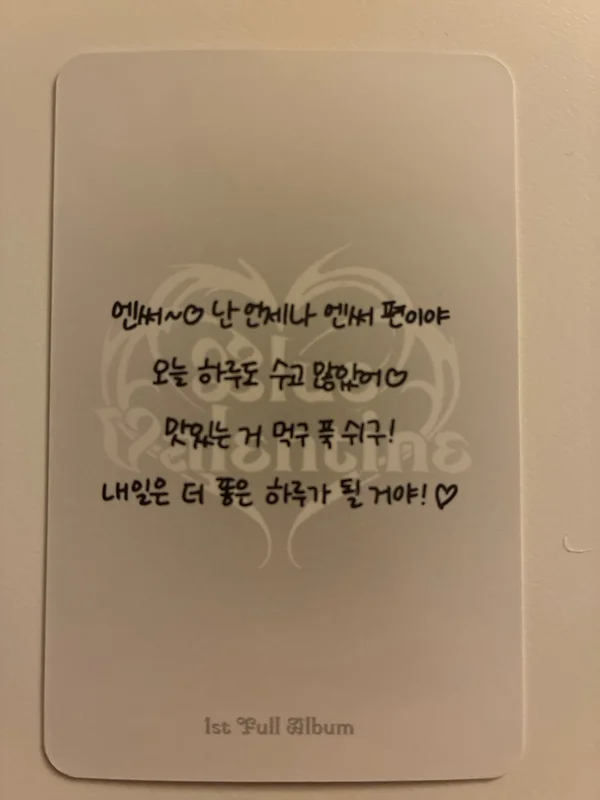 엔써~♡ 난 언제나 엔써 편이야
오늘 하루도 수고 많았어♡
맛있는 거 먹구 푹 쉬구!
내일은 더 좋은 하루가 될 거야!♡
Blue
Valentine
1st Full Album